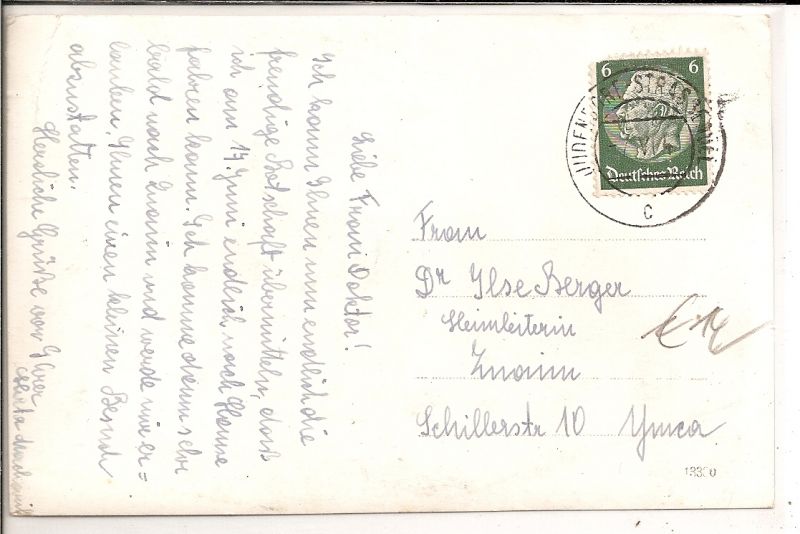 Liebe Frau Doktor!
Ich kann Ihnen nun endlich die
freudige Botschaft übermitteln, daß
ich am 14. Juni endlich nach Hause
fahren kann. Ich komme dann sehr
bald nach Znaim und werde mir er=
lauben, Ihnen einen kleinen Besuch
abzustatten.
Herzliche Grüße von Ihrer
Herta
6 6
Deutsches Reich
JUDENDORF-STRASSENGEL
c
Frau
Dr Ilse Berger
Heimleiterin
Znaim
Schillerstr 10 Ymca
€ 14